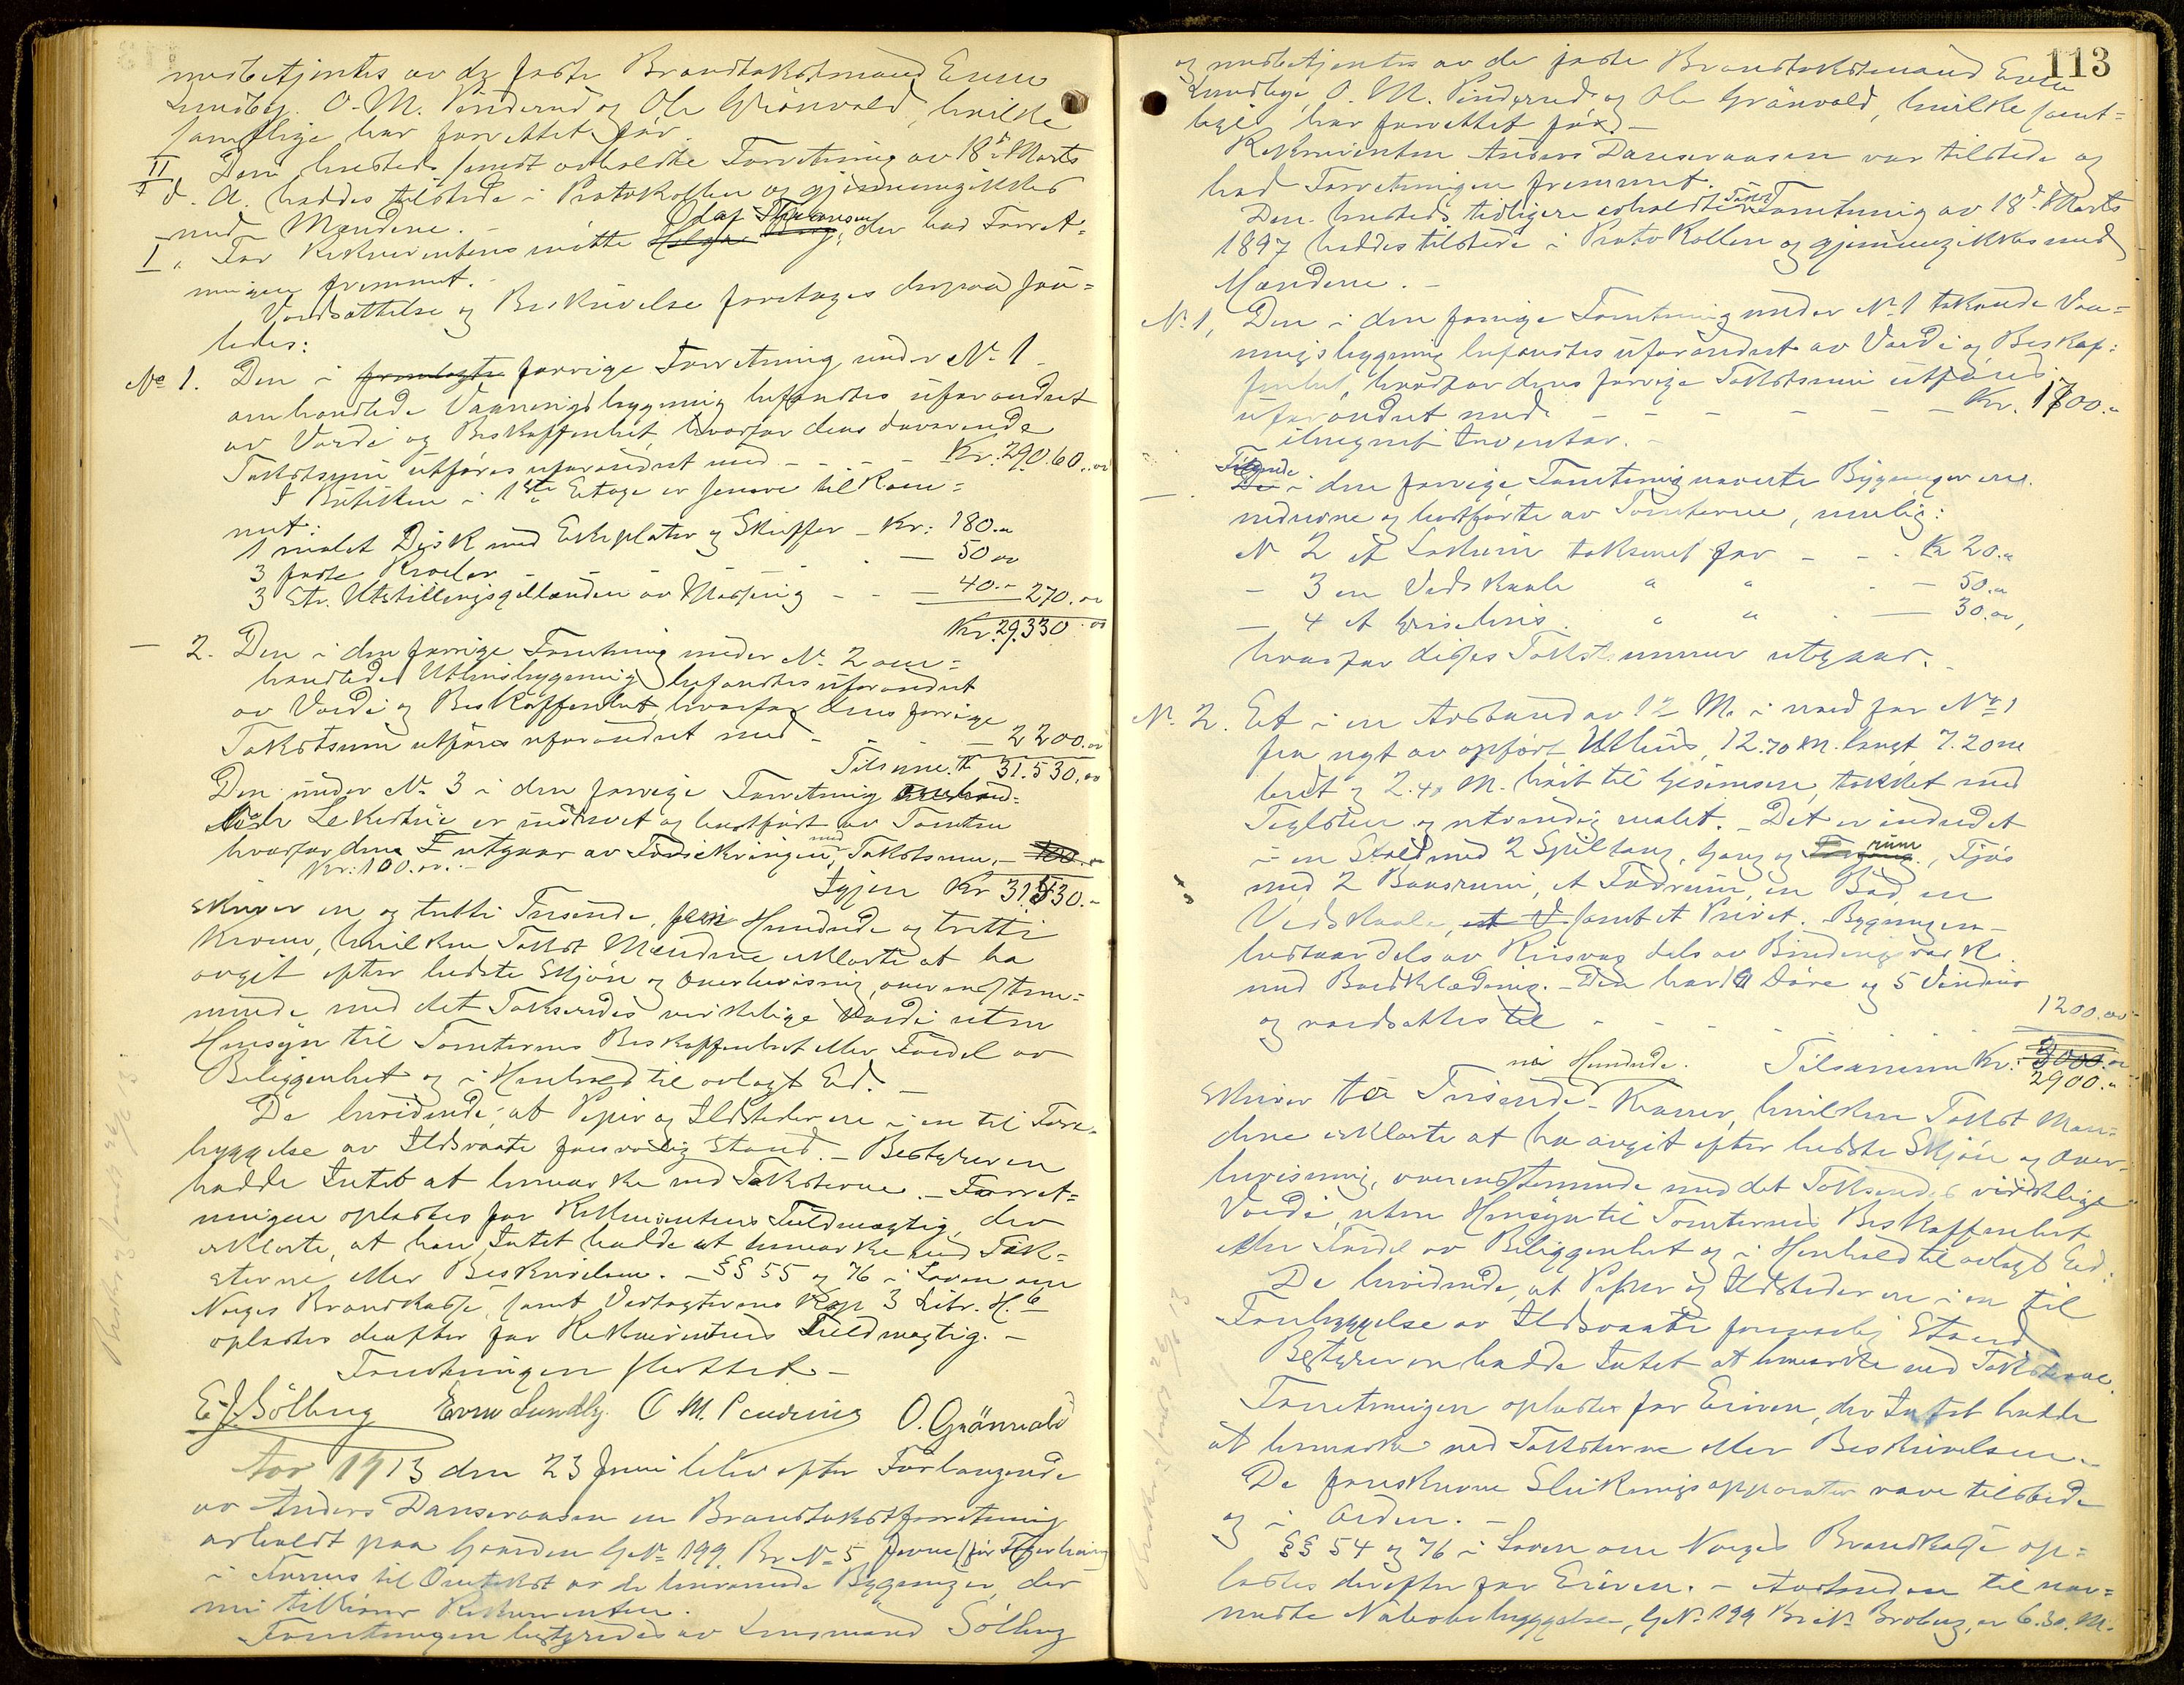 medbetjentes av de faste Brandtakstmænd Even
Lundby, O. M. Pinderud og Ole Grönvold, hvilke
samtlige har forrettet før.
II Den herstede sendt avholdte Forretning av 18de Marts
d. A. haddes tilstede i Protokollen og gjennemgikkes
med Mændene. -
I. For Rekvirentens mötte Olaf Thoresen, der bad Forret=
ningen fremmet. -
Værdsættelse og Beskrivelse foretoges derpaa saa=
ledes:
No 1. Den i forrige Forretning under No 1
omhandlede Vaaningsbygning befandtes uforandret
av Værdi og Beskaffenhet, hvorfor dens daværende
Takstsum utføres uforandret med - - - - Kr. 29.060.oo
I Butiken i 1ste Etage er senere tilkom=
met:
1 malet Disk med Ekeplater og Skuffer - Kr: 180.-
3 faste Reoler - - - - - 50 oo
3 Str. Utstillingsgellændere av Messing - - - 40.- 270.oo
Kr. 29.330.oo
- 2. Den i den forrige Forretning under No 2 om=
handlede Uthusbygning befandtes uforandret
av Værdi og Beskaffenhet, hvorfor dens forrige
Takstsum utføres uforandret med - - - 2200.oo
Tilsam. Kr 31.530.oo
Den under No 3 i den forrige Forretning omhand=
lede Lekestue er nedrevet og bortført av Tomten
hvorfor den utgaar av Forsikringen med Takstsum. - 100.-
Kr: 100.oo. -
Igjen Kr 31530.-
skriver en og tretti Tusende, fem Hundrede og tretti
Kroner, hvilken Takst Mændene erklærte at ha
avgit efter bedste Skjøn og Overbevisning, overensstem=
mende med det Takseredes virkelige Værdi uten
Hensyn til Tomternes Beskaffenhet eller Fordel av
Beliggenhet og i Henhold til avlagt Ed. -
De bevidnede, at Piper og Ildsteder er i en til Fore=
byggelse av Ildsvaade forsvarlig Stand. - Bestyreren
hadde Intet at bemærke ved Taksterne. - Forret=
ningen oplæstes for Rekvirentens Fuldmægtig, der
erklærte, at han Intet hadde at bemærke ved Tak=
sterne eller Beskrivelsen. - §§ 55 og 76 i Loven om
Norges Brandkasse, samt Vedtægternes Kap 3 Litr. H. 6
oplæstes derefter for Rekvirentens Fuldmægtig. -
Forretningen sluttet. -
E. J. Sölberg Even Lundby. O M. Pinderud O. Grönvold
Aar 1913 den 23 Juni blev efter Forlangende
av Anders Danseraasen en Brandtakstforretning
avholdt paa Gaarden G No 199, Br. No 5,
i Furnes til Omtakst av de henværende Bygninger, der
nu tilhører Rekvirenten.
Forretningen bestyredes av Lensmand Sölberg
113
og medbetjentes av de faste Brandtakstmænd Even
Lundby, O. M. Pinderud og Ole Grönvold, hvilke samt=
lige har forrettet før. -
Rekvirenten Anders Danseraasen var tilstede og
bad Forretningen fremmet.
Den herstede tidligere avholdte Takst Forretning av 18de Marts
1897 haddes tilstede i Protokollen og gjennemgikkes med
Mændene. -
No 1, Den i den forrige Forretning under No 1 takserede Vaa=
ningsbygning befandtes uforandret av Værdi og Beskaf=
fenhet, hvorfor dens forrige Takstsum utføres
uforandret med - - - - - - Kr. 1700.-
iberegnet Inventar. -
- Følgende i den forrige Forretning nævnte Bygninger er
nedrevne og bortførte av Tomterne, nemlig:
No 2 et takseret for - - - Kr 20.-
- 3 en Vedskaale " " - - 50.-
- 4 et Grisehus " " - - 30.oo,
hvorfor disses Takstsummer utgaar. -
No 2. Et i en Avstand av 12 M. i nord for No 1
fra nyt av opført Uthus, 12.70 M. langt 7.20 m
bredt og 2.40 M. høit til Gesimsen, tækket med
Teglsten og utvendig malet. - Det er indredet
i en Stald med 2 Spiltaug, Gang og rum, Fjøs
med 2 Baasrum, et Fodrum, en Bod, en
Vedskaale, samt et Privet. Bygningen
bestaar dels av Reisverk dels av Bindingsværk
med Bordklædning. - Den har 9 Døre og 5 Vinduer
og værdsættes til - - - - - 1200.oo
Tilsammen Kr. 3000.-
2900.-
skriver to Tusende ni Hundrede Kroner, hvilken Takst Mæn=
dene erklærte at ha avgit efter bedste Skjøn og Over=
bevisning, overensstemmende med det Takseredes virkelige
Værdi, uten Hensyn til Tomternes Beskaffenhet
eller Fordel av Beliggenhet og i Henhold til avlagt Ed.
De bevidnede, at Piper og Ildsteder er i en til
Forebyggelse av Ildsvaade forsvarlig Stand
Bestyreren hadde Intet at bemærke ved Taksterne.
Forretningen oplæstes for Eieren, der Intet hadde
at bemærke ved Taksterne eller Beskrivelsen. -
De foreskrevne Slukningsapparater vare tilstede
og i Orden. -
§§ 54 og 76 i Loven om Norges Brandkasse op=
læstes derefter for Eieren. - Avstanden til nær=
meste Nabobebyggelse, G No 199 Br No Broberg, er 6.30. M.